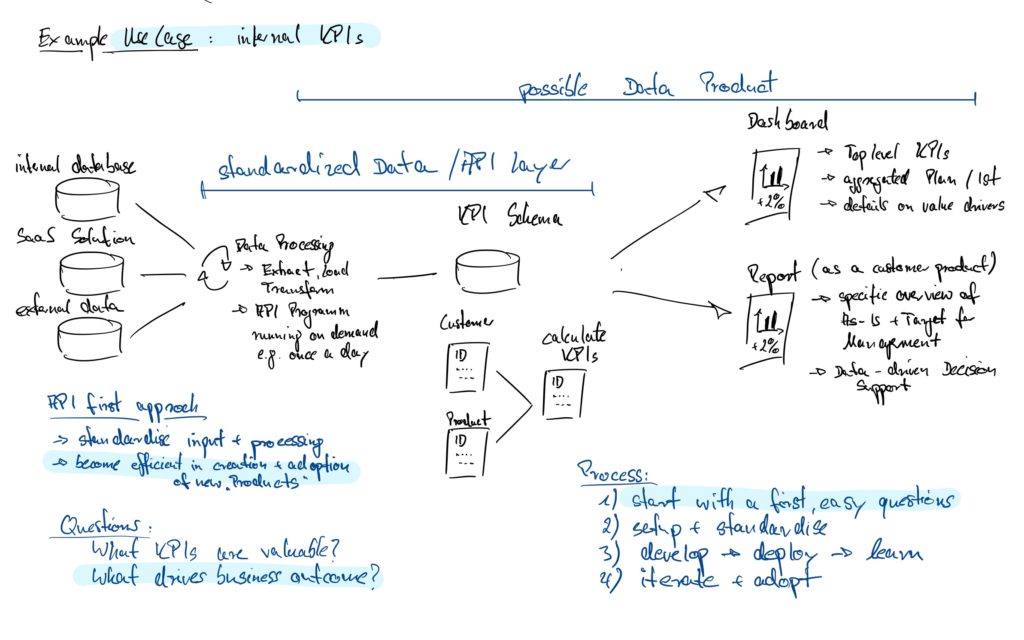 Example Use Case: internal KPIs
possible Data Product
internal database
SaaS Solution
external data
standardized Data / API Layer
Data Processing
→ Extract, Load
Transform
→ API Programm
running on demand
e.g. once a day
KPI Schema
Customer
ID
Product
ID
calculate
KPIs
ID
Dashboard
+2%
→ Top level KPIs
→ aggregated Plan / Ist
→ details on value drivers
Report (as a customer product)
+2%
→ specific overview of
As-Is + Target for
Management
→ Data-driven Decision
Support
API first approch
→ standardise input + processing
→ become efficient in creation + adoption
of new "Products"
Questions:
What KPIs are valuable?
What drives business outcome?
Process:
1) start with a first, easy questions
2) setup + standardise
3) develop → deploy → learn
4) iterate + adopt